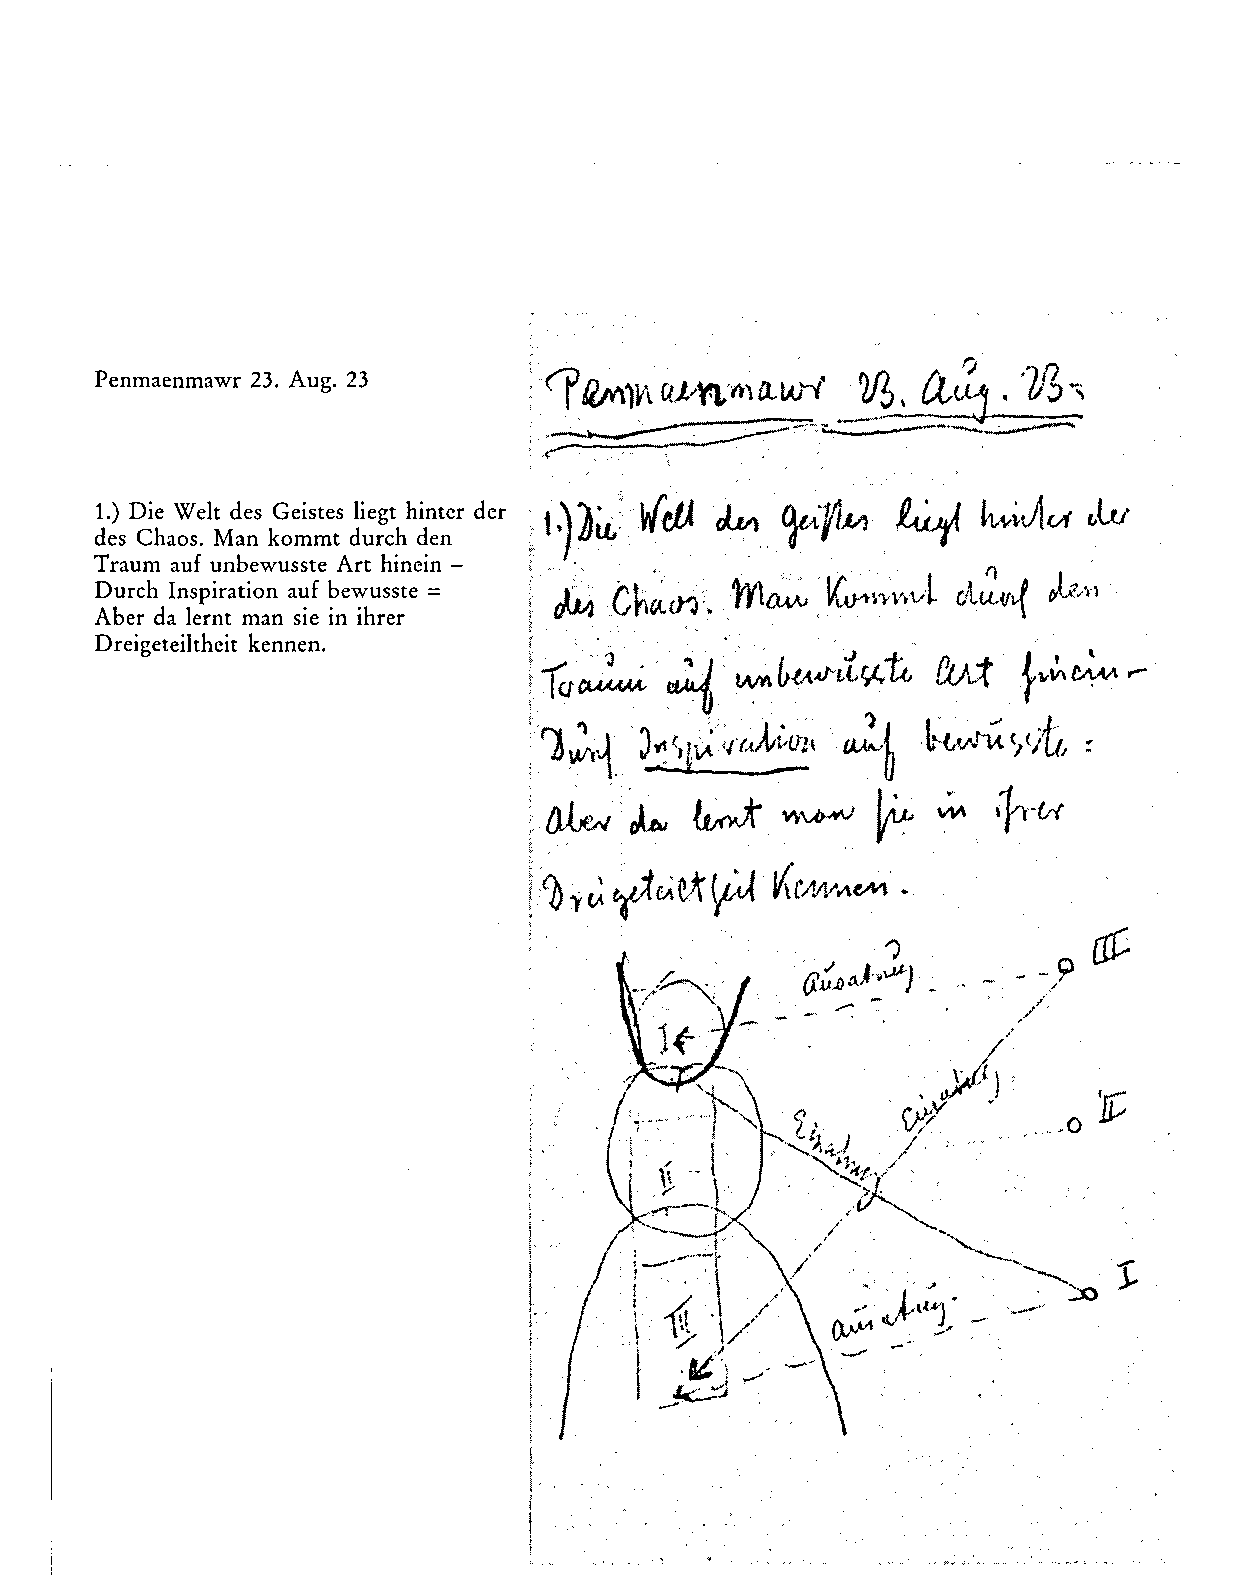 Penmaenmawr 23. Aug. 23
1.) Die Welt des Geistes liegt hinter der
des Chaos. Man kommt durch den
Traum auf unbewusste Art hinein –
Durch Inspiration auf bewusste =
Aber da lernt man sie in ihrer
Dreigeteiltheit kennen.
Penmaenmawr 23. Aug. 23=
1.) Die Welt des Geistes liegt hinter der
des Chaos. Man kommt durch den
Traum auf unbewusste Art hinein –
Durch Inspiration auf bewusste =
Aber da lernt man sie in ihrer
Dreigeteiltheit kennen.
Ausatmung
III
I
Einatmung
II
Einatmung
II
I
III
Ausatmung